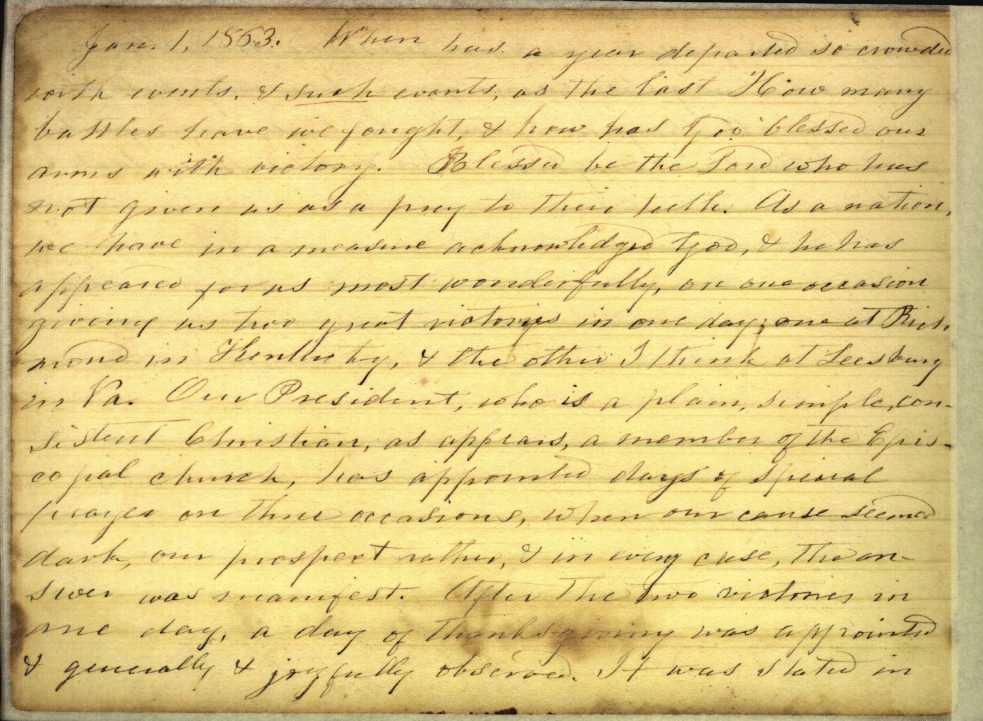 Jan. 1, 1863. When has a year departed so crowded
with events, & such events, as the last How many
battles have we fought, & how has God blessed our
arms with victory. Blessed be the Lord who has
not given us as a prey to their teeth. As a nation,
we have in a measure acknowledged God, & he has
appeared for us most wonderfully, on one occasion
giving us two great victories in one day; one at Rich-
mond in Kentucky, & the other I think at Leesburg
in Va. Our President, who is a plain, simple, con-
sistent Christian, as appears, a member of the Epis-
copal church, has appointed days of special
prayer on three occasions, when our cause seemed
dark, our prospect rather, & in every case, the an-
swer was manifest. After the two victories in
one day, a day of thanksgiving was appointed
& generally & joyfully observed. It was stated in